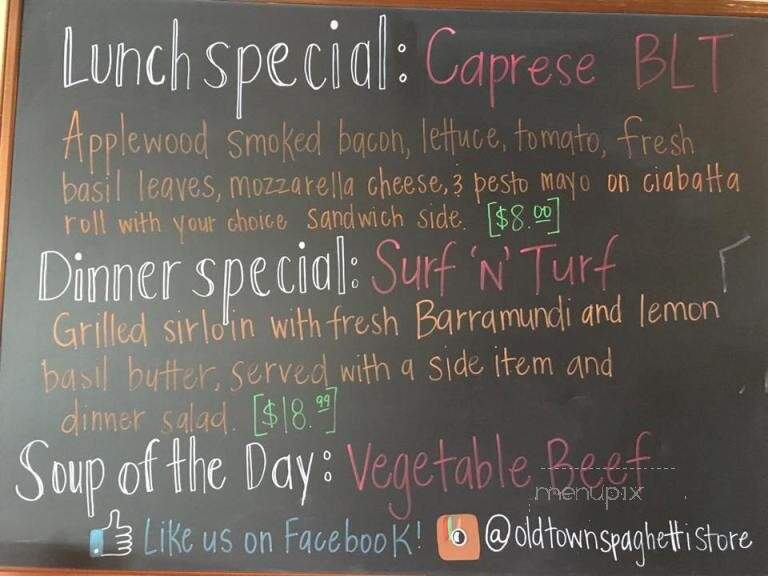 Lunch special: Caprese BLT
Applewood smoked bacon, lettuce, tomato, fresh
basil leaves, mozzarella cheese, & pesto mayo on ciabatta
roll with your choice sandwich side. [$8.00]
Dinner special: Surf 'N' Turf
Grilled sirloin with fresh Barramundi and lemon
basil butter, served with a side item and
dinner salad. [$18.99]
Soup of the Day: Vegetable Beef
menupix
Like us on Facebook! @oldtownspaghettistore